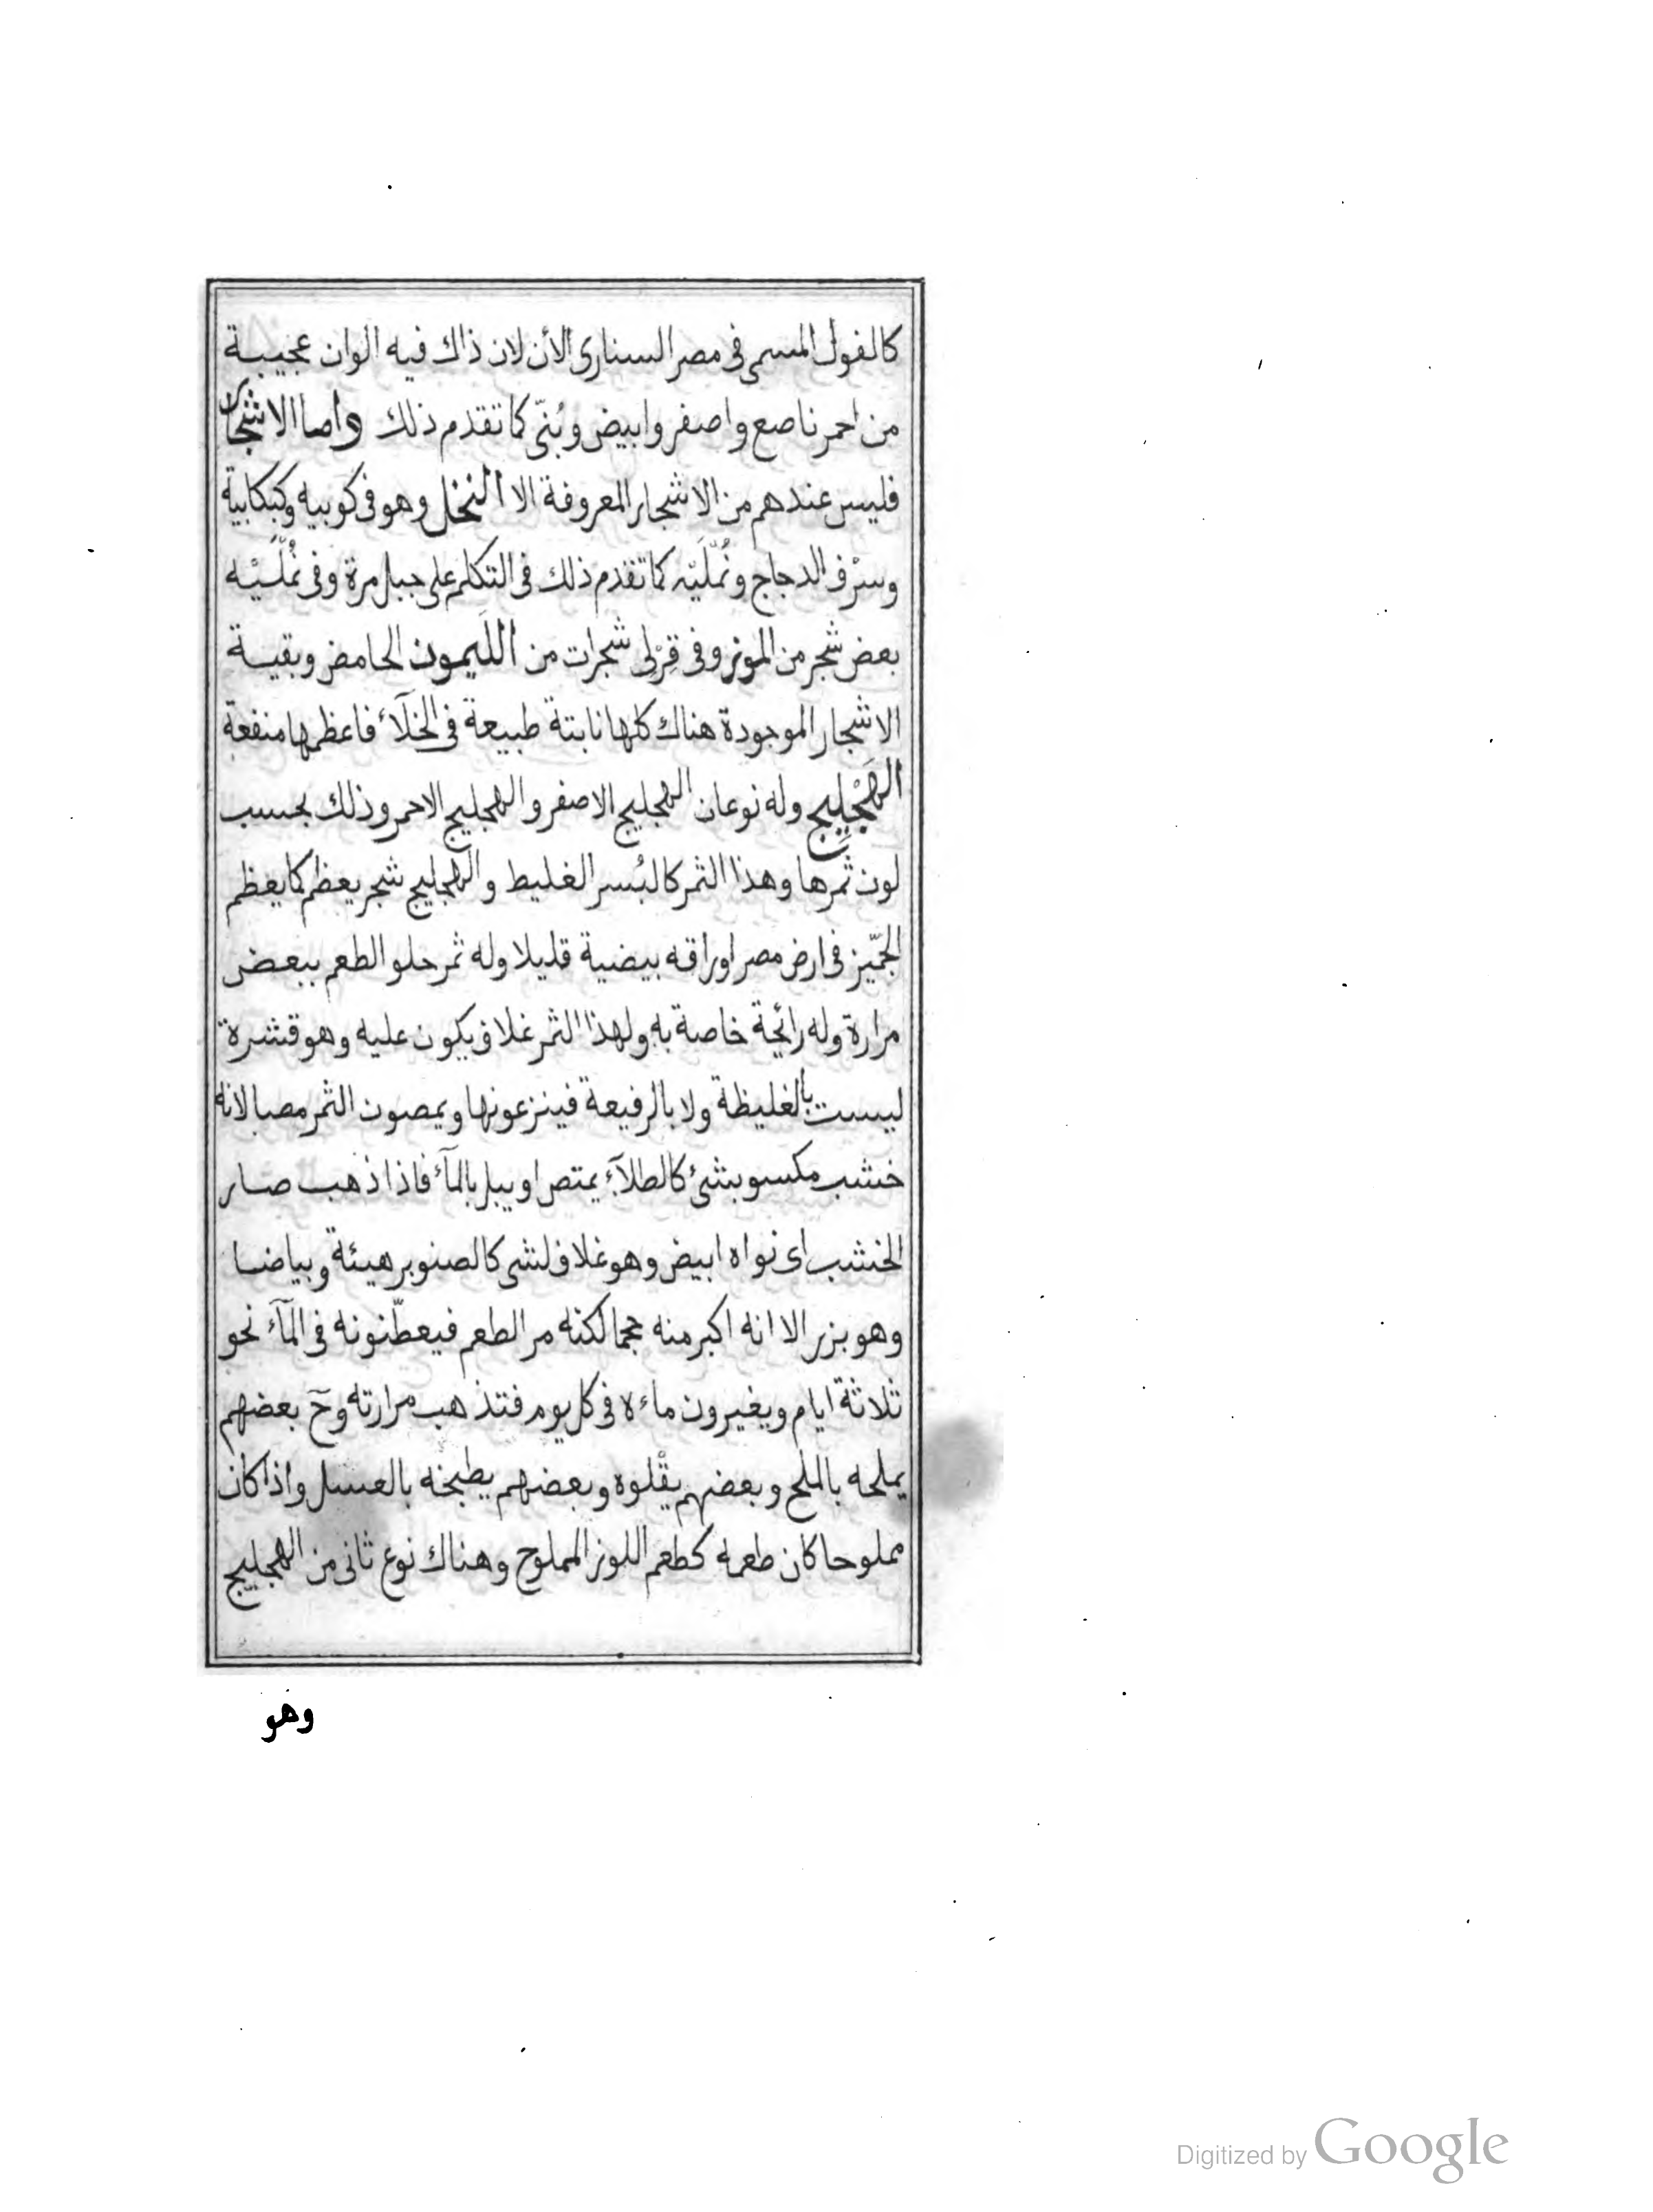 كالفول المسمى فى مصر السنارى الأن لان ذاك فيه الوان عجيبة
من احمر ناصع واصفر وابيض وبُنّى كما تقدم ذلك واما الاشجار
فليس عندهم من الاشجار المعروفة الا النخل وهو فى كوبيه وكبكابية
وسرْف الدجاج ونُمّلَيْه كما تقدم ذلك فى التكلم على جبل مرة وفى نُمّلَيْه
بعض شجر من الموز وفى قِرْلِى شجرات من اللَيمون الحامض وبقية
الاشجار الموجودة هناك كلها نابتة طبيعة فى الخلآء فاعظمها منفعة
الهَجْلِيج وله نوعان الهجليج الاصفر والهجليج الاحمر وذلك بحسب
لون ثمرها وهذا الثمر كالبُسر الغليط والهجليج شجر يعظم كما يعظم
الجمّيز فى ارض مصر اوراقه بيضية قليلا وله ثمر حلو الطعم ببعض
مرارة وله رائحة خاصة به ولهذا الثمر غلاف يكون عليه وهو قشرة
ليست بالغليظة ولا بالرفيعة فينزعونها ويمصون الثمر مصا لانه
خشب مكسو بشئ كالطلآء يمتص او يبل بالمآء فاذا ذهب صار
الخشب اى نواه ابيض وهو غلاف لشى كالصنوبر هيئة وبياضا
وهو بزر الا انه اكبر منه حجما لكنه مر الطعم فيعطّنونه فى المآء نحو
ثلاثة ايام ويغيرون ماءه فى كل يوم فتذهب مرارته وحَ بعضهم
يملحه بالملح وبعضهم يقْلوه وبعضهم يطبخه بالعسل واذا كان
مملوحا كان طعمه كطعم اللوز المملوح وهناك نوع ثانى من الهجليج
وهو
Digitized by Google